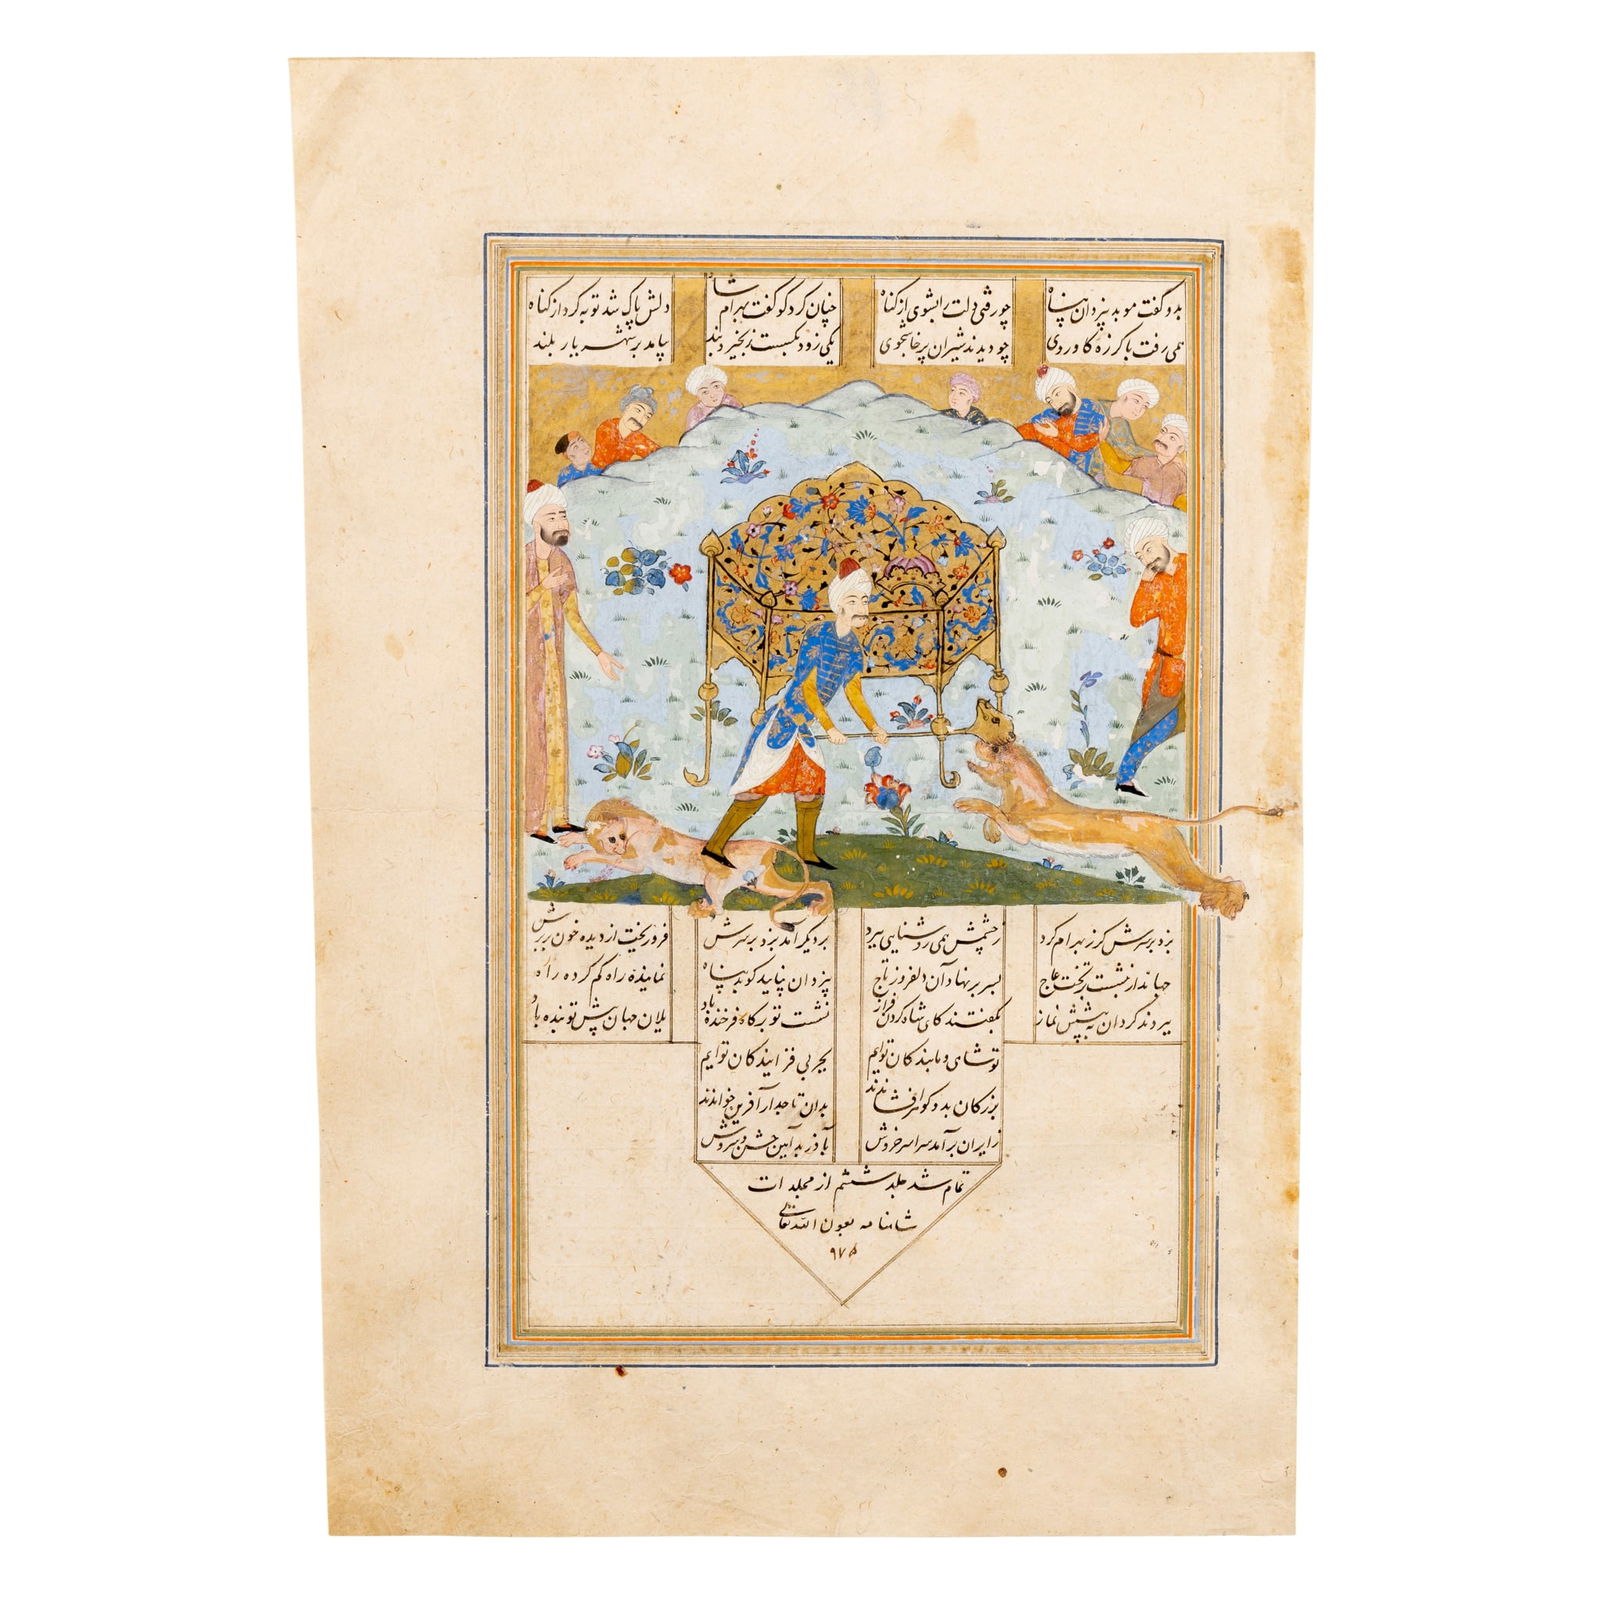 بدو گفت موبد بیزدان پناه چو رفتی دلت را بشوی از گناه چنان کرد کو گفت بهرام شاه دلش پاک شد توبه کرد از گناه
همی رفت با گرزه گاوروی چو دیدند شیران پرخاشجوی یکی زود بگسست زنجیر و بند بیامد بر شهریار بلند
بزد بر سرش گرز بهرام گرد ز چشمش همی روشنایی ببرد بر دیگر آمد بزد بر سرش فرو ریخت از دیده خون بر برش
جهاندار بنشست بر تخت عاج بسر بر نهاد آن دلفروز تاج بیزدان پناهید کو بد پناه نماینده راه گم کرده راه
ببردند گردان به پیشش نماز بگفتند کای شاه گردن فراز نشست تو بر گاه فرخنده باد یلان جهان پیش تو بنده باد
تو شاهی و ما بندگان توایم بخوبی فزایندگان توایم
بزرگان برو گوهر افشاندند بدان تاجدار آفرین خواندند
ز ایران برآمد سراسر خروش بآذر بد آیین جشن و سروش
تمام شد جلد ششم از مجلدات
شاهنامه بعون الله تعالی
۹۷۵